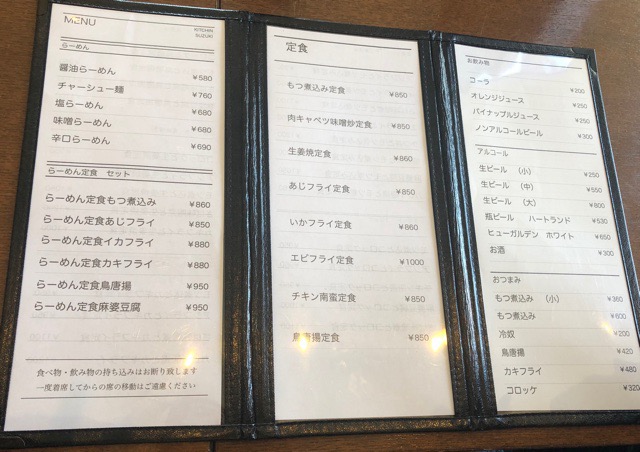 MENU
KITCHIN
SUZUKI
らーめん
醤油らーめん ¥580
チャーシュー麺 ¥760
塩らーめん ¥680
味噌らーめん ¥680
辛口らーめん ¥690
らーめん定食 セット
らーめん定食もつ煮込み ¥860
らーめん定食あじフライ ¥850
らーめん定食イカフライ ¥880
らーめん定食カキフライ ¥880
らーめん定食鳥唐揚 ¥950
らーめん定食麻婆豆腐 ¥950
食べ物・飲み物の持ち込みはお断り致します
一度着席してからの席の移動はご遠慮ください
定食
もつ煮込み定食 ¥850
肉キャベツ味噌炒定食 ¥850
生姜焼定食 ¥860
あじフライ定食 ¥850
いかフライ定食 ¥850
エビフライ定食 ¥1000
チキン南蛮定食 ¥850
鳥唐揚定食 ¥850
お飲み物
コーラ ¥200
オレンジジュース ¥250
パイナップルジュース ¥250
ノンアルコールビール ¥300
アルコール
生ビール (小) ¥250
生ビール (中) ¥550
生ビール (大) ¥800
瓶ビール ハートランド ¥530
ヒューガルデン ホワイト ¥650
お酒 ¥300
おつまみ
もつ煮込み (小) ¥360
もつ煮込み ¥600
冷奴 ¥200
鳥唐揚 ¥420
カキフライ ¥480
コロッケ ¥320